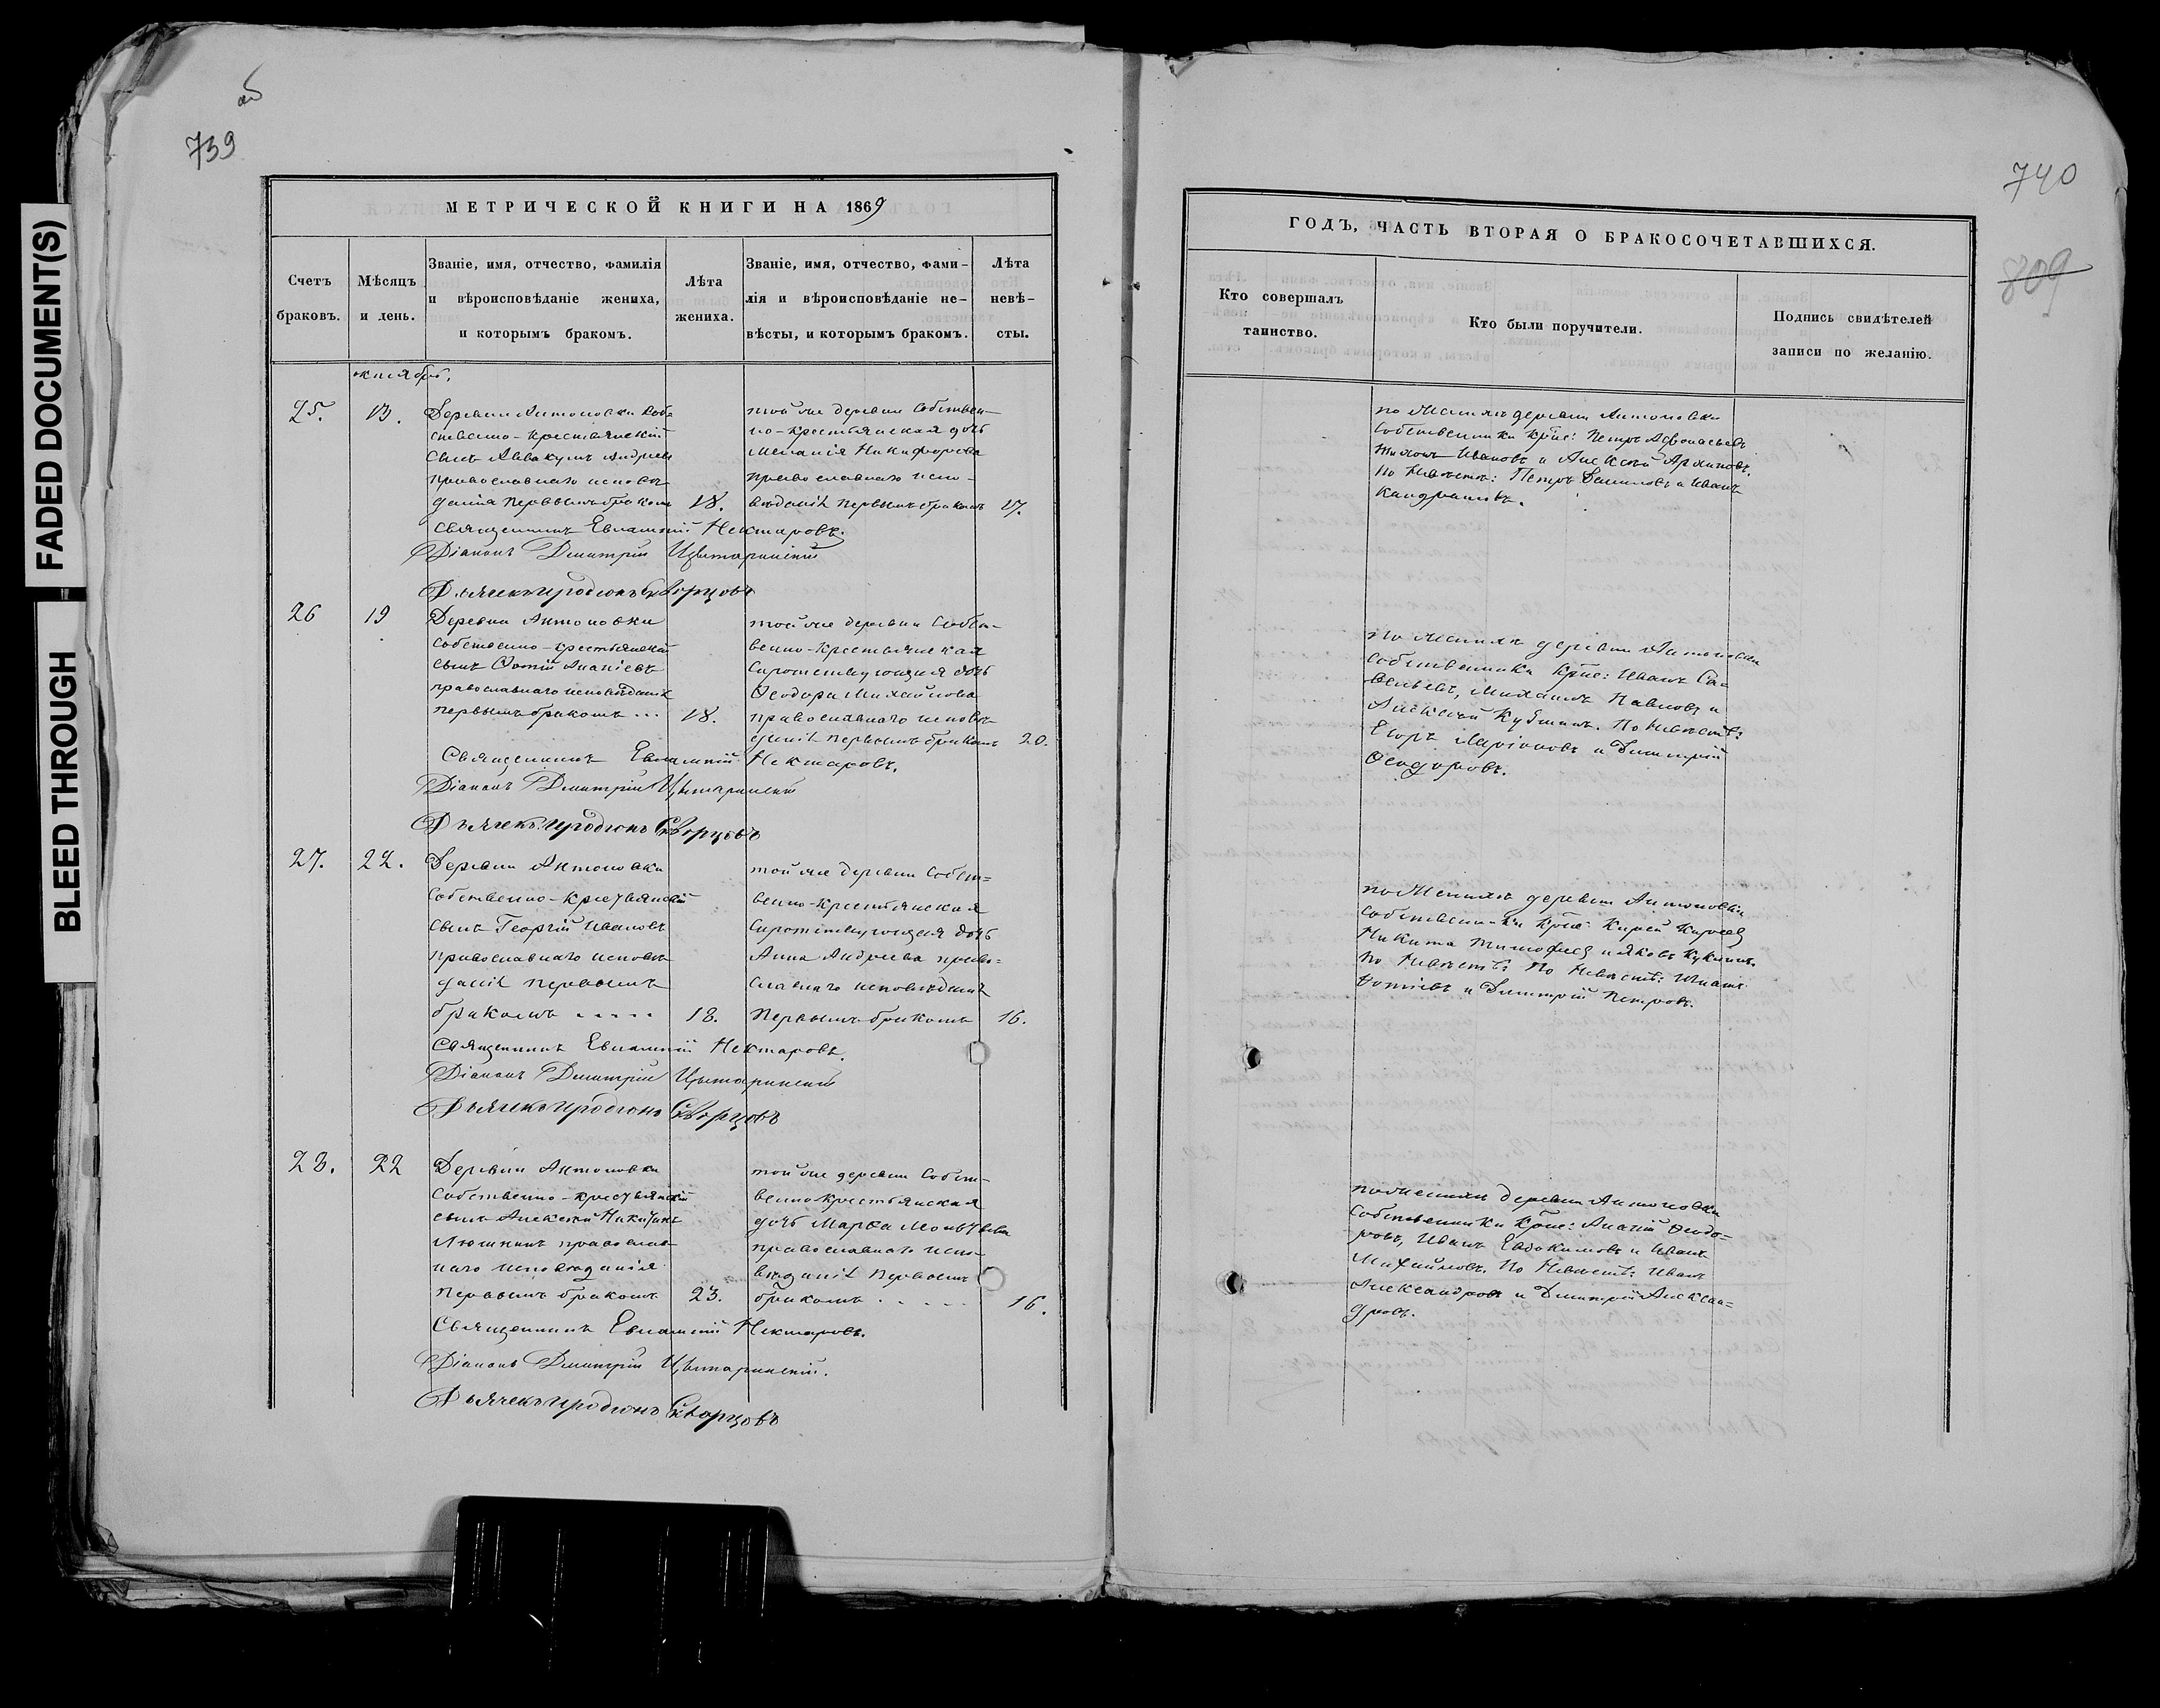 об
739
МЕТРИЧЕСКОЙ КНИГИ НА 1869
Счетъ браковъ.
Мѣсяцъ и день.
Званіе, имя, отчество, фамилія
и вѣроисповѣданіе жениха,
и которымъ бракомъ.
Лѣта
жениха.
Званіе, имя, отчество, фами-
лія и вѣроисповѣданіе не-
вѣсты, и которымъ бракомъ.
Лѣта
невѣ-
сты.
октября.
25.
13.
Деревни Антоновки соб-
ственно-крестьянскій
сынъ Аввакумъ Андреев
православнаго исповѣ-
данія первымъ бракомъ
18.
той же деревни собствен-
но-крестьянская дочь
Меланія Никифорова
православнаго испо-
вѣданія первымъ бракомъ
17.
Священникъ Евлампій Нектаровъ.
Діаконъ Димитрій
Дьячекъ Иродіонъ Скворцовъ
26
19
Деревни Антоновки
собственно-крестьянскій
сынъ Фотій Ананіевъ
православнаго исповѣданія
первымъ бракомъ...
18.
той же деревни собст-
венно-крестьянская
сиротствующая дочь
Ѳеодора Михайлова
православнаго исповѣ-
данія первымъ бракомъ
20.
Священникъ Евлампій Нектаровъ.
Діаконъ Димитрій
Дьячекъ Иродіонъ Скворцовъ
27.
22.
Деревни Антоновки
собственно-крестьянскій
сынъ Георгій Ивановъ
православнаго исповѣ-
данія первымъ
бракомъ .....
18.
той же деревни собст=
венно-крестьянская
сиротствующая дочь
Анна Андреева право=
славнаго исповѣданія
первымъ бракомъ
16.
Священникъ Евлампій Нектаровъ.
Діаконъ Димитрій
Дьячекъ Иродіонъ Скворцовъ
28.
22
Деревни Антоновки
собственно-крестьянскій
сынъ Алексѣй Никитинъ
православ-
наго исповѣданія
первымъ бракомъ
23.
той же деревни собст-
венно крестьянская
дочь Марѳа
православнаго испо-
вѣданія первымъ
бракомъ . . . . .
16.
Священникъ Евлампій Нектаровъ.
Діаконъ Димитрій
Дьячекъ Иродіонъ Скворцовъ
740
809
ГОДЪ, ЧАСТЬ ВТОРАЯ О БРАКОСОЧЕТАВШИХСЯ.
Кто совершалъ
таинство.
Кто были поручители.
Подпись свидѣтелей
записи по желанію.
по женихѣ деревни Антоновки
собственники кр̃не: Петръ Аѳонасьевъ
Тихонъ Ивановъ и Алексѣй Архиповъ.
По невѣстѣ: Петръ Даниловъ и Иванъ
Кандратовъ.
по женихѣ деревни Антоновки
собственники кр̃не: Иванъ Са-
вельевъ, Михаилъ Павловъ и
Алексѣй Кузминъ. По невѣстѣ:
Егоръ Ларіоновъ и Димитрій
Ѳеодоровъ.
по женихѣ деревни Антоновки
собственники кр̃не: Кирей Киреев
Никита Тимофеев и Яковъ
по невѣстѣ: По невѣстѣ: Игнатъ
Фотіевъ и Димитрій Петровъ.
по женихѣ деревни Антоновки
собственники кр̃не: Ѳеодо=
ровъ, Иванъ Евдокимовъ и Иванъ
Михайловъ. По невѣстѣ: Иванъ
Александровъ и Димитрій Алексан=
дровъ.
FADED DOCUMENT(S)
BLEED THROUGH